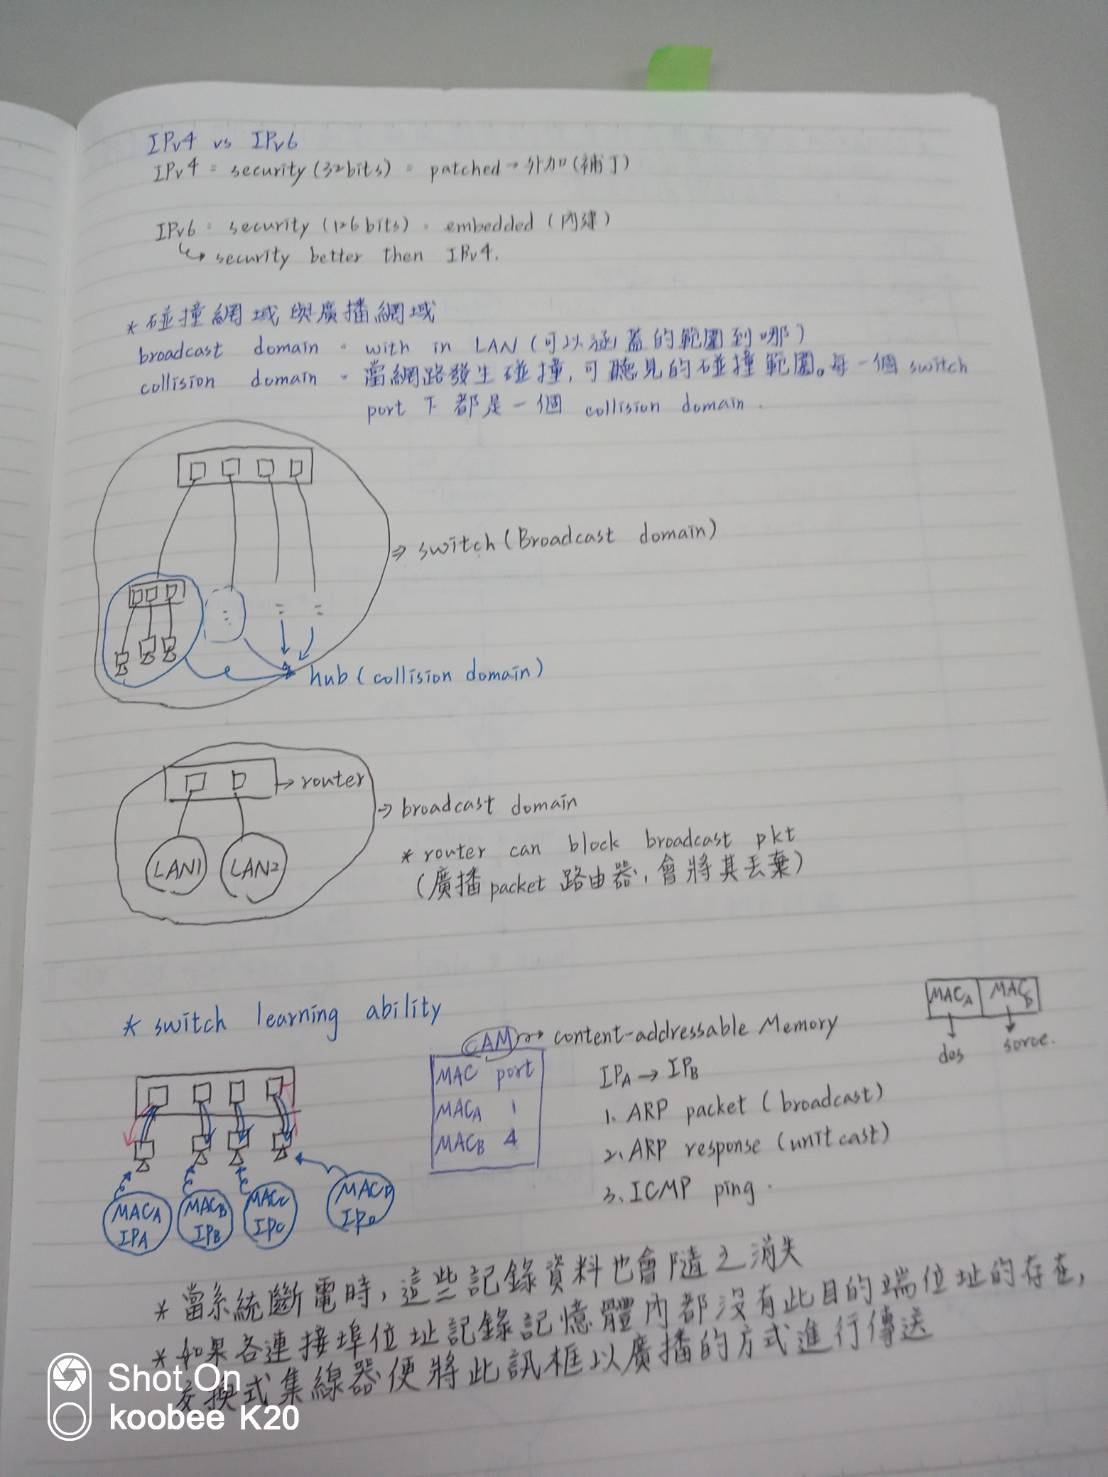 IPv4 vs IPv6
IPv4 = security (32bits) = patched → 外加(補丁)
IPv6 = security (126 bits) = embedded (內建)
↳ security better then IPv4.
* 碰撞網域與廣播網域
broadcast domain = with in LAN (可以涵蓋的範圍到哪)
collision domain = 當網路發生碰撞, 可聽見的碰撞範圍。每一個 switch
port 下都是一個 collision domain.
⇒ switch (Broadcast domain)
hub (collision domain)
→ router
→ broadcast domain
LAN1 LAN2
* router can block broadcast pkt
(廣播 packet 路由器, 會將其丟棄)
MACA MACB
dos sorce.
* switch learning ability
CAM → content-addressable Memory
MAC port
MACA 1
MACB 4
IPA → IPB
1. ARP packet (broadcast)
2. ARP response (unitcast)
3. ICMP ping.
MACA IPA
MACB IPB
MACC IPC
MACD IPD
* 當系統斷電時, 這些記錄資料也會隨之消失
* 如果各連接埠位址記錄記憶體內都沒有此目的端位址的存在,
交換式集線器便將此訊框以廣播的方式進行傳送
Shot On
koobee K20